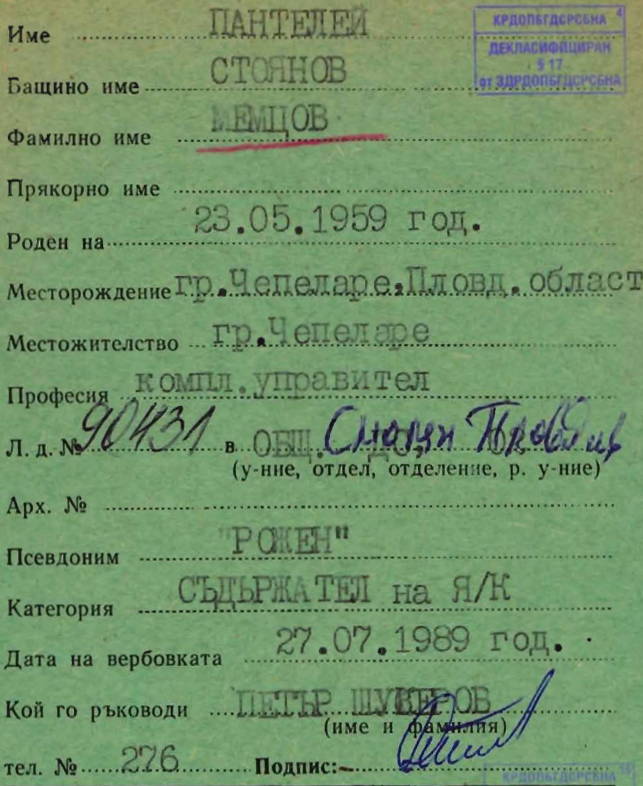 КРДОПБГДСРСБНА 4
ДЕКЛАСИФИЦИРАН
§ 17
от ЗДРДОПБГДСРСБНА
Име ПАНТЕЛЕЙ
Бащино име СТОЯНОВ
Фамилно име МЕМЦОВ
Прякорно име
Роден на 23.05.1959 год.
Месторождение гр.Чепеларе,Пловд.област
Местожителство гр.Чепеларе
Професия компл.управител
Л. д. № 90431 в ОБЩ. Смолян Пловдив
(у-ние, отдел, отделение, р. у-ние)
Арх. №
Псевдоним "РОЖЕН"
Категория СЪДЪРЖАТЕЛ на Я/К
Дата на вербовката 27.07.1989 год.
Кой го ръководи ПЕТЪР
(име и фамилия)
тел. № 276 Подпис:
КРДОПБГДСРСБНА